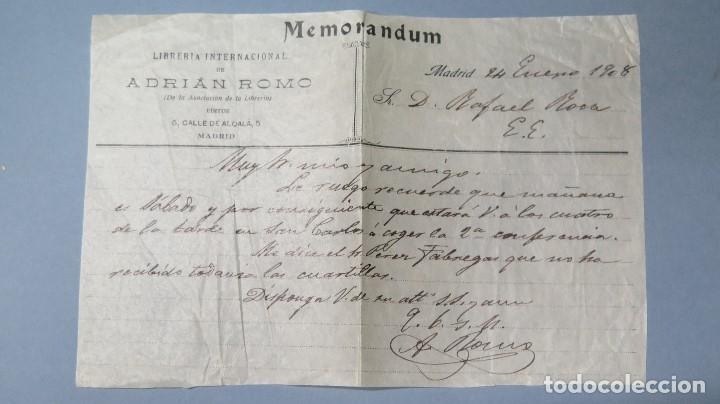 Memorandum
LIBRERÍA INTERNACIONAL
DE
ADRIÁN ROMO
(De la Asociación de la Librería)
EDITOR
5, CALLE DE ALCALÁ, 5
MADRID
Madrid 24 Enero 1908
Sr. D. Rafael Roca
E. E.
Muy Sr. mio y amigo:
Le ruego recuerde que mañana
es Sábado y por consiguiente que estará V. a las cuatro
de la tarde en San Carlos á coger la 2ª conferencia.
Me dice el Sr. Perez Fábregas que no ha
recibido todavia las cuartillas.
Disponga V. de su attº s.s. y amº
q. b. s. m.
A. Romo
todocoleccion